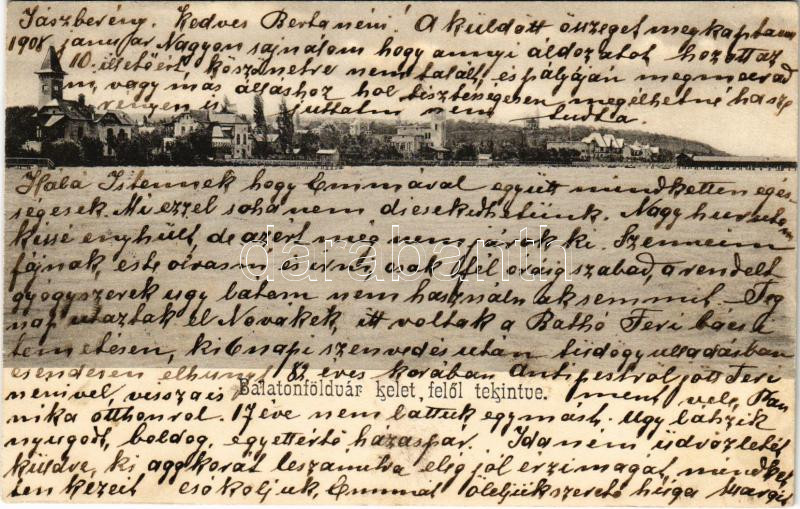 Jászberény. Kedves Berta néni! A küldött összeget megkaptam
1908 január Nagyon sajnálom hogy annyi áldozatot hozott az
10. illetőért köszönetre nem talált, és pályáján megmarad
vagy más álláshoz hol tisztességesen megélhetné ha sze
rényen is juttatni nem tudta.
Hála Istennek hogy Emmával együtt mindketten egés-
ségesek. Mi ezzel soha nem dicsekedhetünk. Nagy
kissé enyhült, de azért még nem járok ki. Szemeim
fájnak, este olvasni és írni csak fél óráig szabad, a rendelt
gyógyszerek ugy látom nem használnak semmit. Teg
nap utaztak el Novákék, itt voltak a Bathó Feri bácsi
temetésen, ki 6 napi szenvedés után tüdőgyulladásban
csendesen elhunyt 82 éves korában Antipestről jött Feri
nénivel, vissza is ment vele, Pan
nika otthonról. 17 éve nem láttuk egymást. Ugy látszik
nyugodt, boldog, egyetértő házaspár. Ida néni üdvözletét
küldve, ki aggkorát leszámítva elég jól érzi magát, mindket
ten kezeit csókoljuk, Emmát öleljük szerető húga Margit
Balatonföldvár kelet felől tekintve.
darabanth